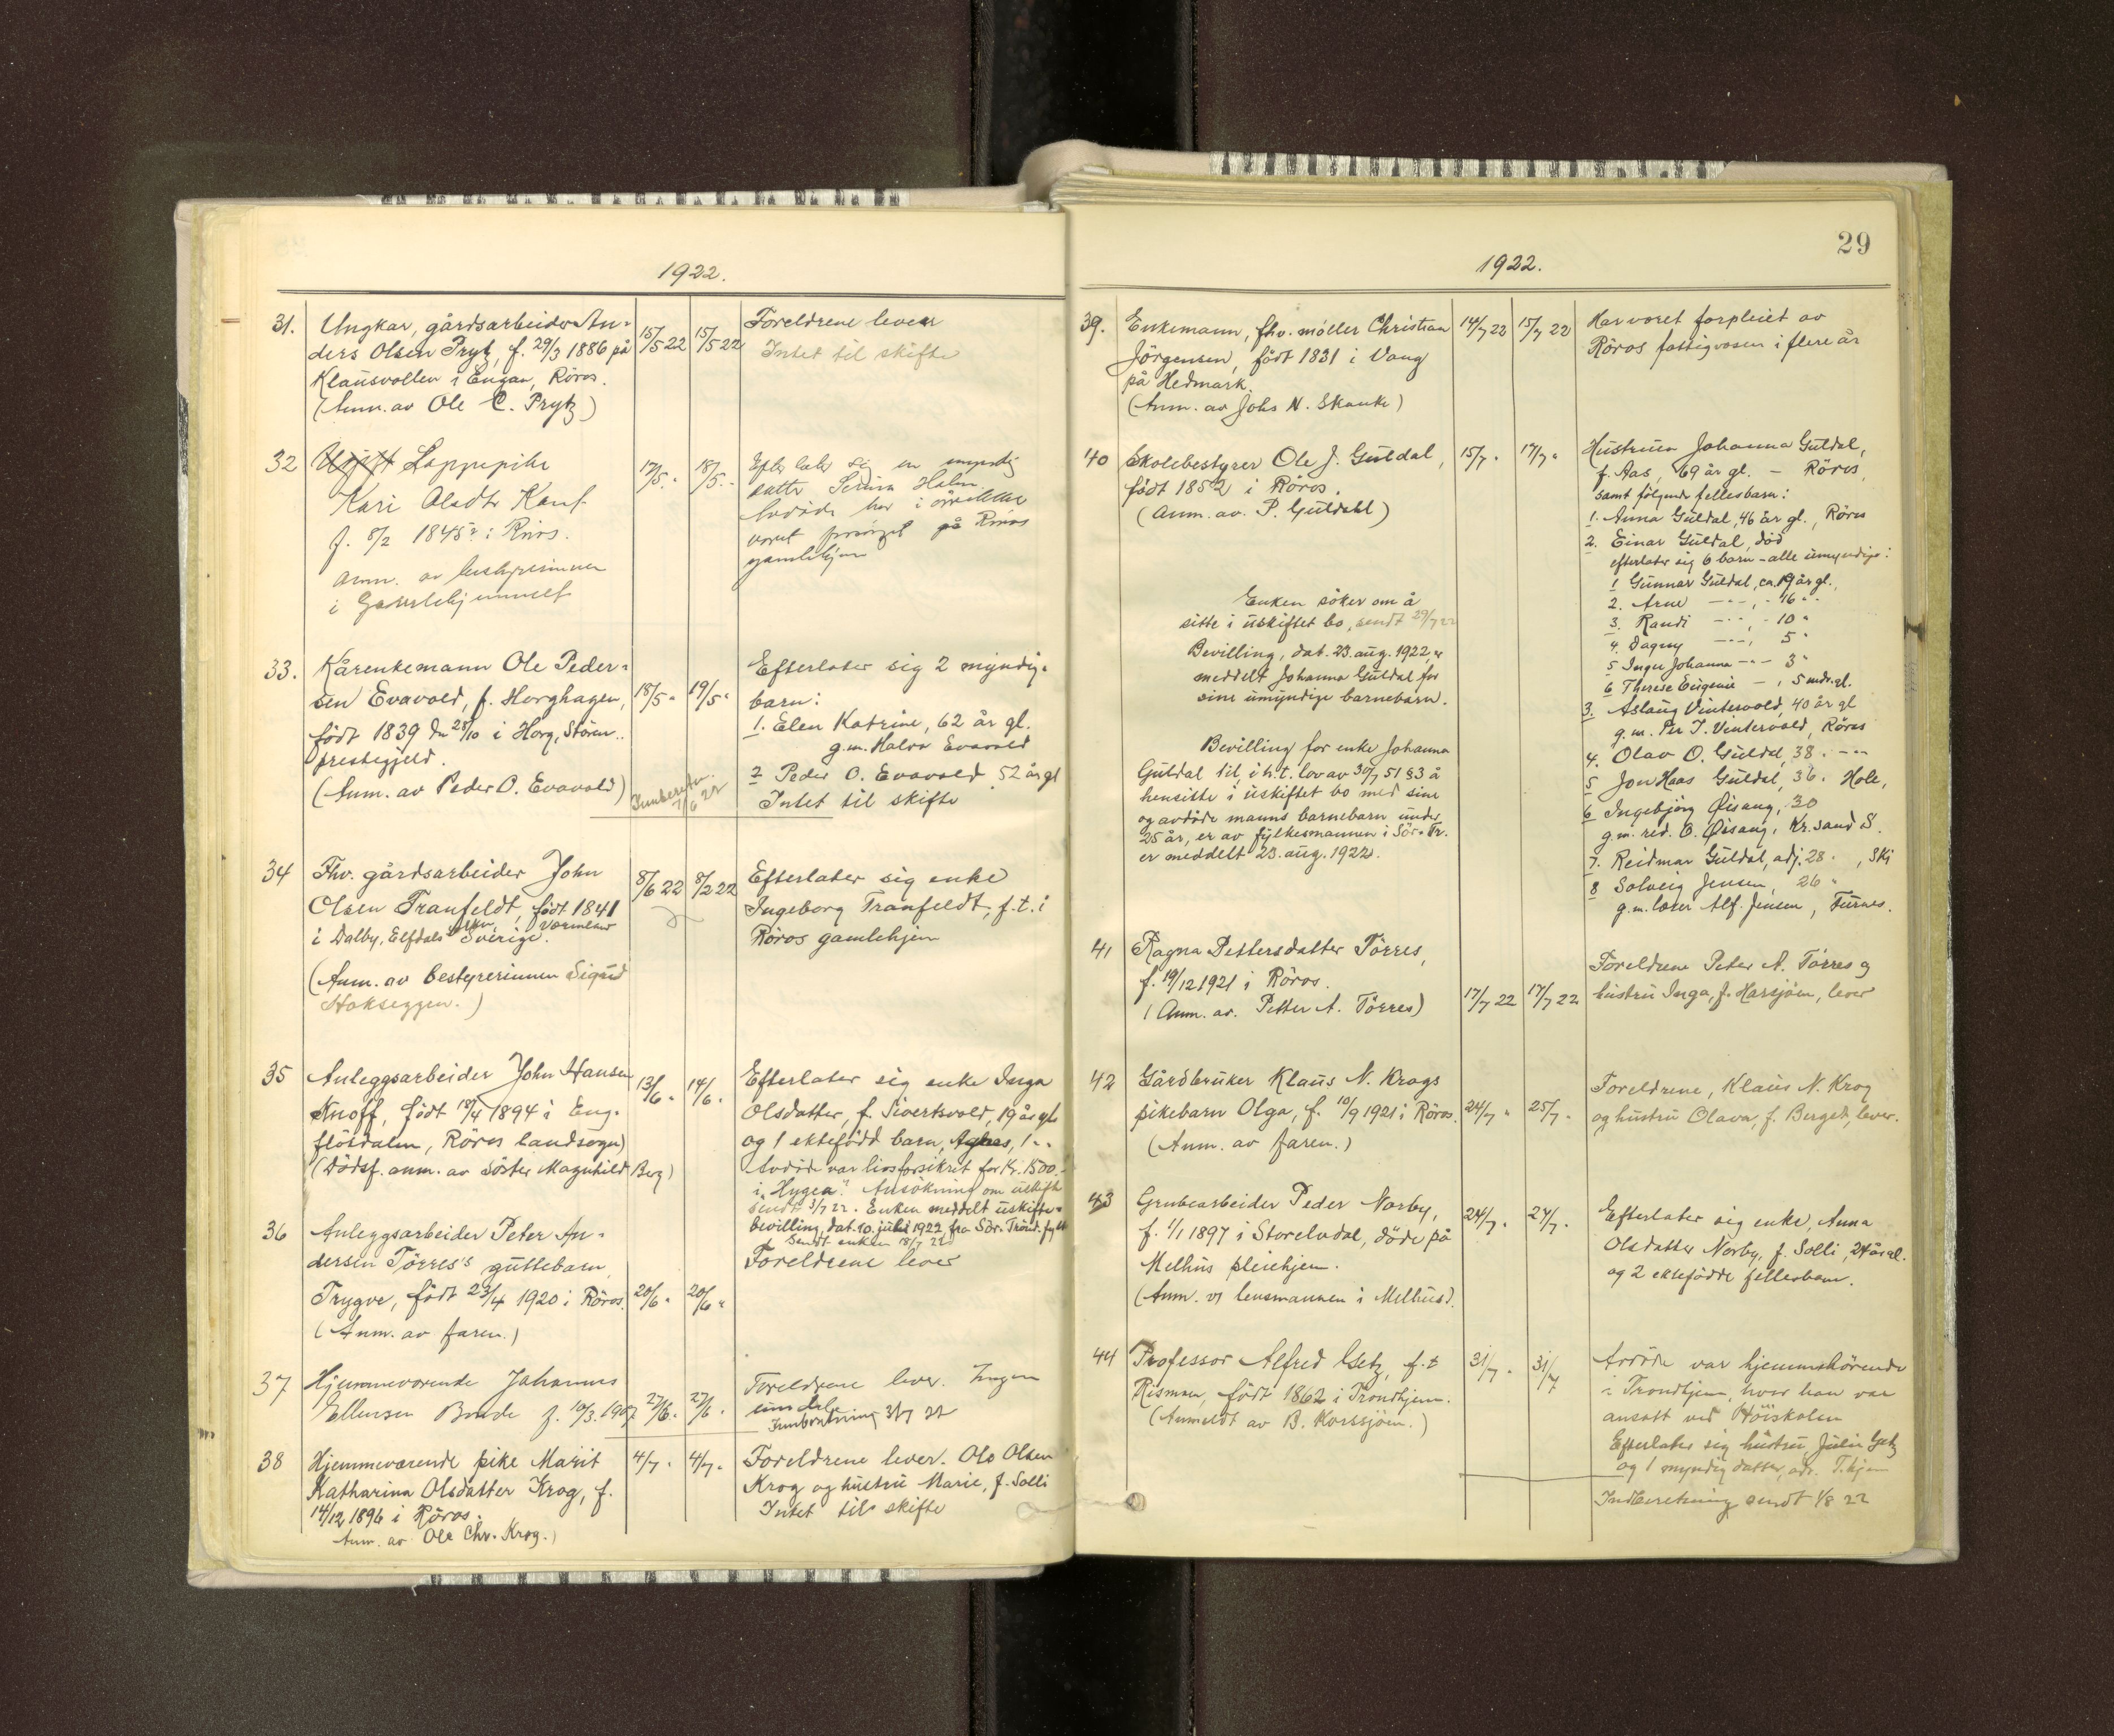 1922.
31. Ungkar, gårdsarbeider An=
ders Olsen Prytz, f. 29/3 1886 på
Klausvollen i Engan, Röros.
(Anm. av Ole C. Prytz)
15/5 22 15/5 22
Foreldrene lever
Intet til skifte
32 Ugift Lappepike
Kari Olsdtr Kant
f. 8/2 1845? i Röros.
anm. av bestyrerinnen
i Gamlehjemmet
17/5. " 18/5. -
Efterlater sig en myndig
datter Serina Holm
Avdöde har i årrekke
været forsörget på Röros
gamlehjem
33. Kårenkemann Ole Peder=
sen Evavold, f. Horghagen,
født 1839 den 28/10 i Horg, Støren..
prestegjeld.
(Anm. av Peder O. Evavold)
18/5 " 19/5 "
Innberetn. 7/6 22
Efterlater sig 2 myndig.
barn:
1. Elen Katrine, 62 år gl.
g.m. Halvor Evavold
2 Peder O. Evavold 52 år gl
Intet til skifte
34 Fhv. gårdsarbeider John
Olsen Tranfeldt, født 1841
i Dalby, Elfdals Värmland Sverige.
(Anm. av bestyrerinnen Sigrid
Stokseggen.)
8/6 22 8/2 22
Efterlater sig enke
Ingeborg Tranfeldt, f.t. i
Röros gamlehjem
35 Anleggsarbeider John Hansen
Knoff, født 18/4 1894 i Eng.
flösdalen, Röros landsogn)
(Dødsf. anm. av søster Magnhild Berg)
13/6 " 14/6 "
Efterlater sig enke Inga
Olsdatter, f. Sivertsvold, 19 år gl
og 1 ektefødd barn, Agnes, 1 --
Avdöde var livsforsikret for Kr. 1500.-
i "Hygea". Ansökning om uskifte
sendt 3/7 22. Enken meddelt uskifte=
bevilling, dat. 10. juli 1922 fra Sör. Trönd. fylke
Sendt enken 18/7 22
36 Anleggsarbeider Peter An=
dersen Törres's guttebarn
Trygve, født 23/4 1920 i Röros.
(Anm. av faren.)
20/6 " 20/6 "
Foreldrene lever
37 Hjemmeværende Johannes
Ellensen Borde f. 10/3. 1907
27/6. " 27/6. "
Foreldrene lever. Ingen
eiendele
Innberetning 3/7 22
38 Hjemmeværende pike Marit
Katharina Olsdatter Krog, f.
14/12 1896 i Röros.
Anm. av Ole Chr. Krog.)
4/7 " 4/7 "
Foreldrene lever. Ole Olsen
Krog og hustru Marie, f. Solli
Intet til skifte
29
1922.
39. Enkemann, fhv. møller Christian
Jörgensen, født 1831 i Vang
på Hedmark.
(Anm. av Johs N. Skanke)
14/7 22 15/7 22
Har været forpleiet av
Röros fattigvæsen i flere år
40 Skolebestyrer Ole J. Guldal,
født 1852 i Röros.
(Anm. av. P. Guldahl)
15/7 " 17/7 "
Enken söker om å
sitte i uskiftet bo, sendt 29/7 22
Bevilling, dat. 23. aug. 1922, er
meddelt Johanna Guldal for
sine umyndige barnebarn.
Bevilling for enke Johanna
Guldal til, i h.t. lov av 30/7 51 § 3 å
hensitte i uskiftet bo med sine
og avdöde manns barnebarn under
25 år, er av fylkesmannen i Sör-Tr.
er meddelt 23. aug. 1922.
Hustruen Johanna Guldal,
f. Aas, 69 år gl. - Röros,
samt følgende fellesbarn:
1. Anna Guldal, 46 år gl., Röros
2. Einar Guldal, død
efterlater sig 6 barn - alle umyndige:
1 Gunnar Guldal, ca. 19 år gl.,
2. Arne -"-, - 16 " -
3. Randi -"- - 10 "
4. Dagny -"-, 5 "
5 Inger Johanna -"- 3 "
6 Therese Eugenie -, 5 mdr. gl.
3. Aslaug Vintervold, 40 år gl
g.m. Per T. Vintervold, Röros
4. Olav O. Guldal, 38. -"-
5 Jon Haas Guldal, 36. Hole,
6 Ingebjörg Øisang, 30
g.m. red. O. Øisang, Kr.sand S.
7. Reidmar Guldal, adj. 28. , Ski
8 Solveig Jensen, 26 "
g.m. lærer Alf. Jensen, Furnes.
41 Ragna Pettersdatter Törres,
f. 19/12 1921 i Röros.
(Anm. av. Petter A. Törres)
17/7 22 17/7 22
Foreldrene Peter A. Törres og
hustru Inga, f. Harsjöen, lever
42 Gårdbruker Klaus N. Krogs
pikebarn Olga, f. 10/9 1921 i Röros.
(Anm. av faren.)
24/7 " 25/7 "
Foreldrene, Klaus N. Krog
og hustru Olava, f. Berget, lever.
43 Grubearbeider Peder Norby,
f. 1/1 1897 i Storelvdal, döde på
Melhus pleiehjem.
(Anm. v/ lensmannen i Melhus).
24/7 " 27/7 "
Efterlater sig enke, Anna
Olsdatter Norby, f. Solli, 24 år gl.
og 2 ektefødde fellesbarn.
44 Professor Alfred Getz, f.t
Rismoen, født 1862 i Trondhjem.
(Anmeldt av B. Korssjöen.)
31/7 " 31/7
Avdöde var hjemmehörende
i Trondhjem, hvor han var
ansatt ved Höiskolen
Efterlater sig hustru, Julie Getz
og 1 myndig datter, adr. T.hjem
Indberetning sendt 1/8 22